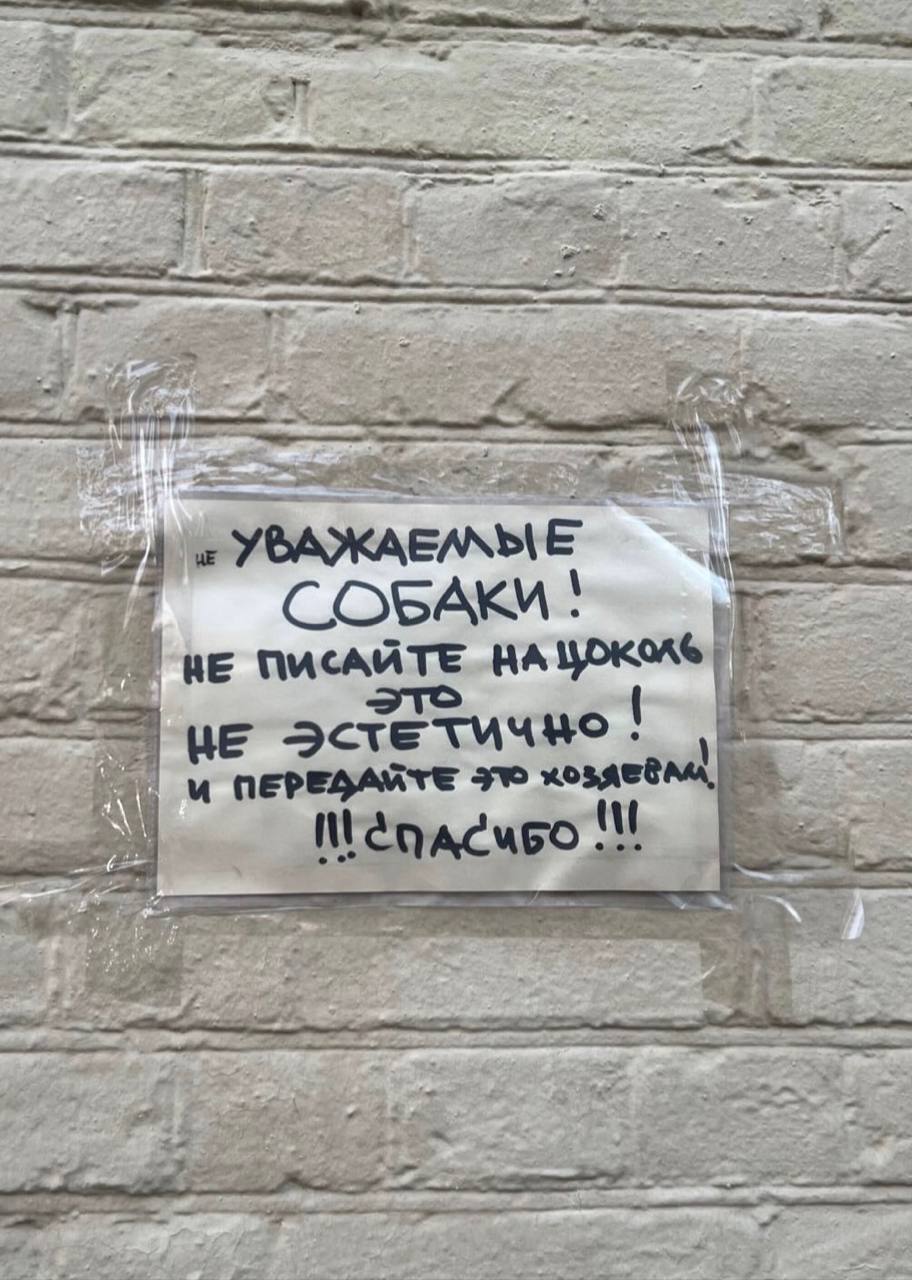 не УВАЖАЕМЫЕ
СОБАКИ!
НЕ ПИСАЙТЕ НА ЦОКОЛЬ
ЭТО
НЕ ЭСТЕТИЧНО!
И ПЕРЕДАЙТЕ ЭТО ХОЗЯЕВАМ!
!!! СПАСИБО !!!